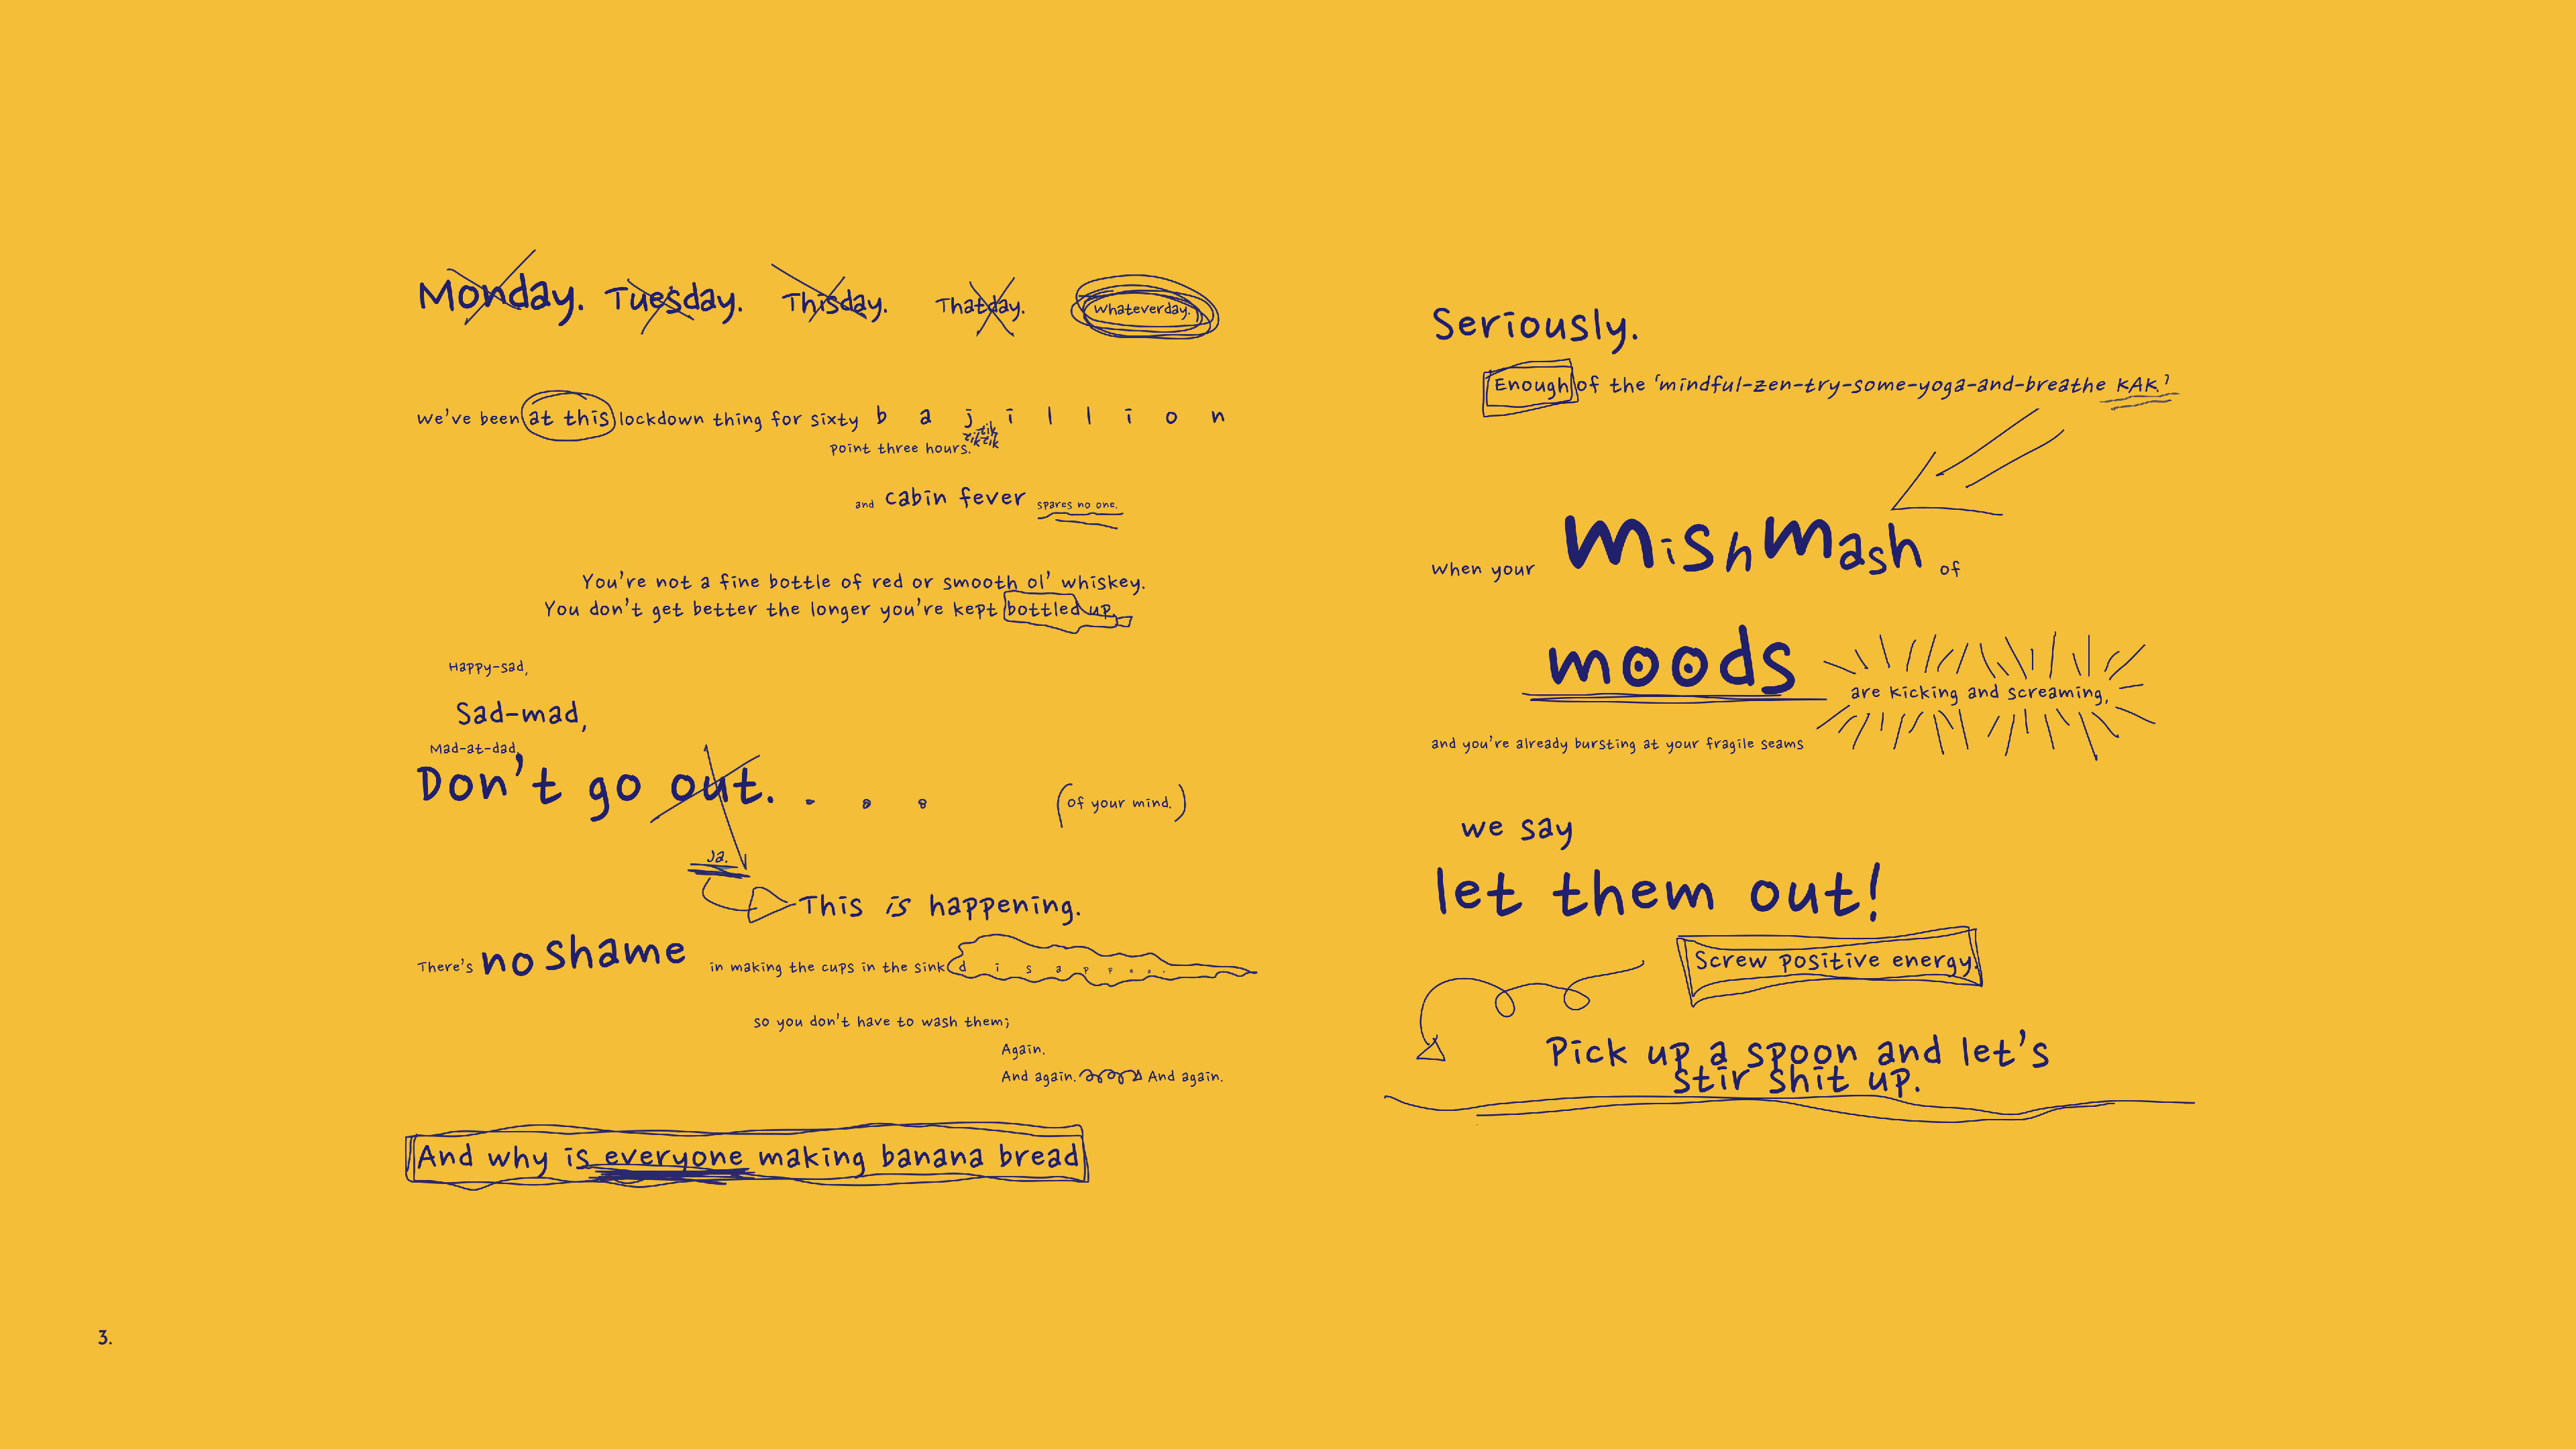 Monday. Tuesday. Thisday. Thatday. Whateverday.
We've been at this lockdown thing for sixty b a j i l l i o n
tik
tiktik
point three hours.
and cabin fever spares no one.
You're not a fine bottle of red or smooth ol' whiskey.
You don't get better the longer you're kept bottled up.
Happy-sad,
Sad-mad,
Mad-at-dad,
Don't go out. . . . (of your mind.)
Ja.
This is happening.
There's no shame in making the cups in the sink d i s a p p e a r
so you don't have to wash them;
Again.
And again. And again.
And why is everyone making banana bread
Seriously.
Enough of the 'mindful-zen-try-some-yoga-and-breathe KAK.'
When your mishmash of
moods are kicking and screaming,
and you're already bursting at your fragile seams
we say
let them out!
Screw positive energy.
Pick up a spoon and let's
stir shit up.
3.